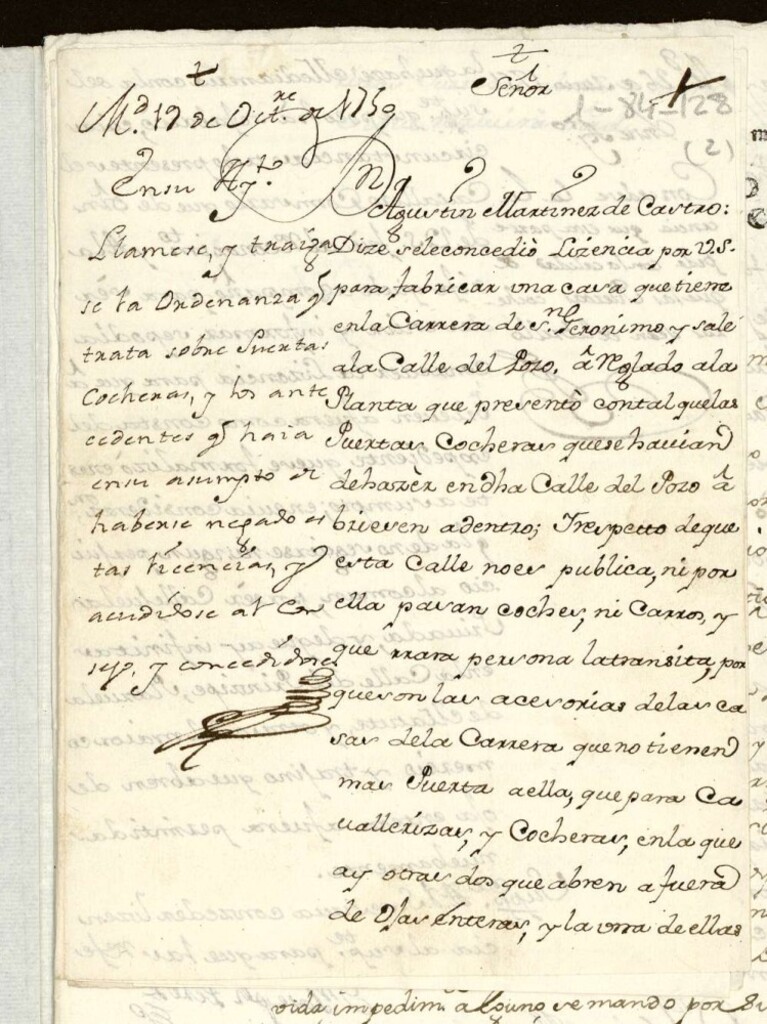 Señor
1-84-128
(2)
M.d 19 de Oct.re de 1759
En su Ay.to
Llamese, y traiga
se la Ordenanza q
trata sobre Puertas
Cocheras, y los ante
cedentes q haia
en su asumpto de
haberse negado es
tas licencias, y
acudídose al Con
sejo, y concedídose
Dn Agustin Martinez de Castro:
Dize se le concediò Lizencia por V.S.
para fabricar una casa que tiene
en la Carrera de S.n Geronimo y sale
a la Calle del Pozo, arreglado a la
Planta que presentò con tal que las
Puertas Cocheras que se havian
de hazèr en dha Calle del Pozo a
briesen adentro; Y respecto de que
esta Calle no es publica, ni por
ella pasan coches, ni Carros, y
que rrara persona la transita, por
que son las acesorias de las ca
sas de la Carrera que no tienen
mas Puerta a ella, que para Ca
vallerizas, y Cocheras, en la que
ay otras dos que abren a fuera
de Ojas enteras, y la una de ellas
vida, impedim.to alguno se mando por